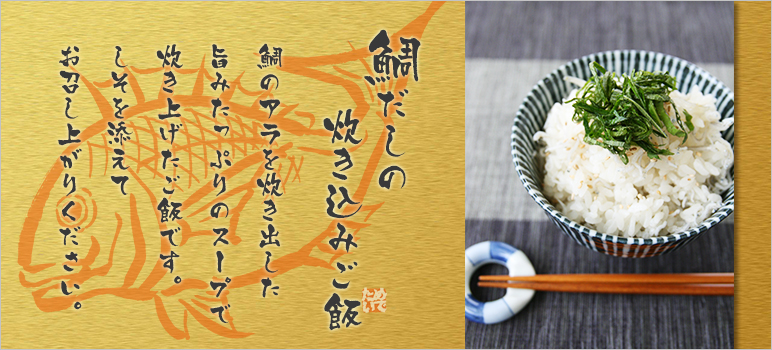 鯛だしの
炊き込みご飯
鯛のアラを炊き出した
旨みたっぷりのスープで
炊き上げたご飯です。
しそを添えて
お召し上がりください。